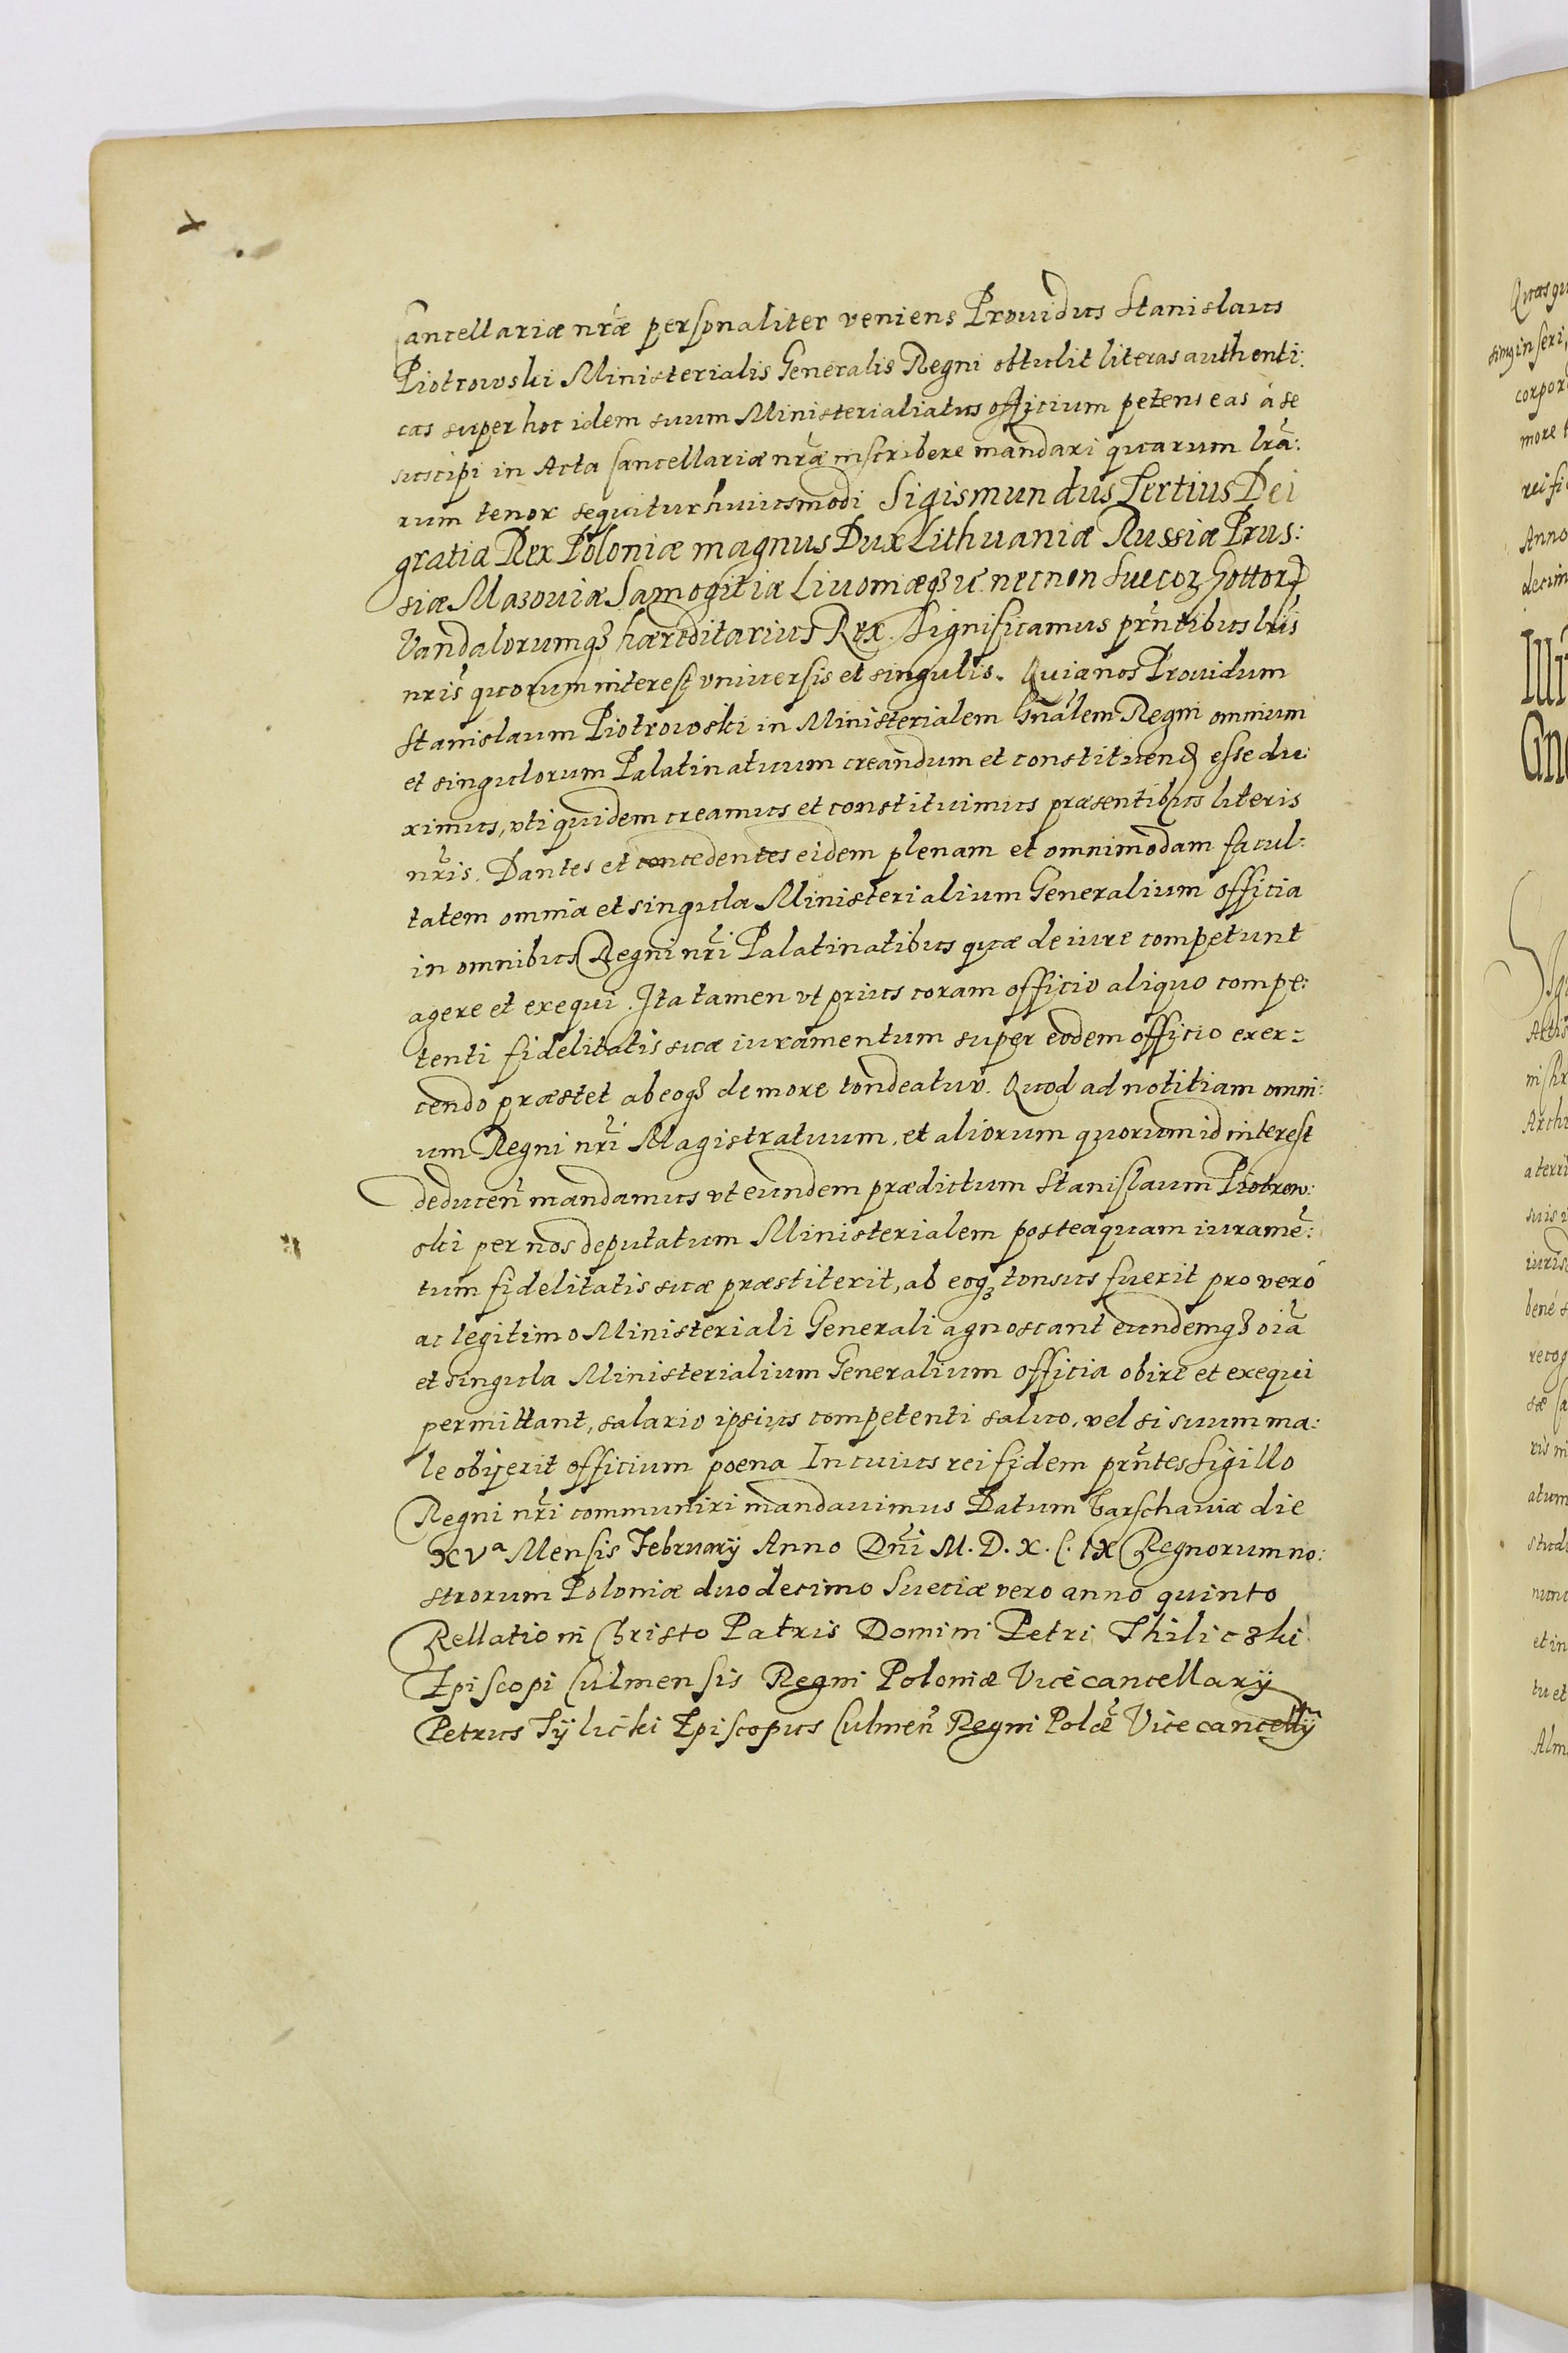 Cancellariæ nr̃æ personaliter veniens Prouidus Stanislaus
Piotrowski Ministerialis Generalis Regni obtulit literas authenti:
cas super hoc idem suum Ministerialiatus officium petens eas à se
suscipi in Acta Cancellariæ nr̃æ inscribere mandari quarum lr̃a:
rum tenor sequitur huiusmodi Sigismundus Tertius Dei
gratia Rex Poloniæ magnus Dux Lithuaniæ Russiæ Prus:
siæ Mazouiæ Samogitiæ Liuoniæqꝫ ꝛc̃. necnon Suecoꝝ Gottoꝝ
Vandalorumqꝫ hæreditarius Rex. Significamus prñtibus lr̃is
nr̃is quorum interest vniuersis et singulis. Quia nos Prouidum
Stanislaum Piotrowski in Ministerialem Gñalem Regni omnium
et singulorum Palatinatuum creandum et constituend esse du:
ximus, vti quidem creamus et constituimus præsentibus literis
nr̃is. Dantes et concedentes eidem plenam et omnimodam facul:
tatem omnia et singula Ministerialium Generalium officia
in omnibus Regni nr̃i Palatinatibus quæ de iure competunt
agere et exequi. Ita tamen vt prius coram officio aliquo compe:
tenti fidelitatis suæ iuramentum super eodem officio exer=
cendo præstet ab eoqꝫ de more tondeatur. Quod ad notitiam omni:
um Regni nr̃i Magistratuum, et aliorum quorum id interest
deducen̄ mandamus vt eundem prædictum Stanislaum Piotrow:
ski per nos deputatum Ministerialem posteaquam iuramẽ:
tum fidelitatis suæ præstiterit, ab eoqꝫ tonsus fuerit pro vero
ac legitimo Ministeriali Generali agnoscant eundemqꝫ oĩa
et singula Ministerialium Generalium officia obire et exequi
permittant, salario ipsius competenti saluo, vel si suum ma:
le obijerit officium poena In cuius rei fidem prñtes Sigillo
Regni nr̃i communiri mandauimus Datum Varschauiæ die
XVa Mensis February Anno Dñi M. D. X. C. IX Regnorum no:
strorum Poloniæ duodecimo Sueciæ vero anno quinto
Rellatio in Christo Patris Domini Petri Thiliczki
Episcopi Culmensis Regni Poloniæ Vicecancellarÿ
Petrus Tÿlicki Episcopus Culmeñ Regni Polæ̃ Vicecancellÿ